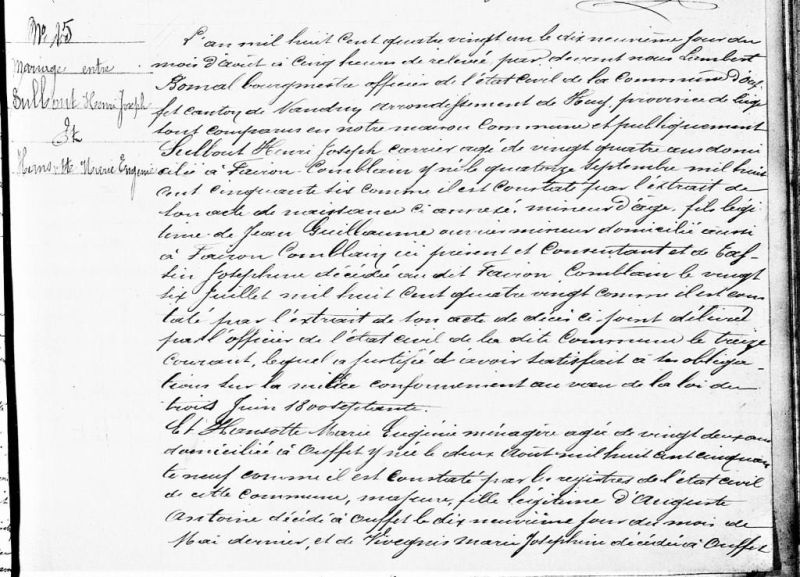 No. 15
Mariage entre
Sulbout Henri Joseph
Et
Marie Eugenie
L'an mil huit cent quatre vingt un le dix neuvième jour du
mois d'août à cinq heures de relevée par devant nous Lambert
Bomal bourgmestre officier de l'état civil de la Commune d'Ouf
fet canton de Nandrin arrondissement de Huy, province de Liége
sont comparus en notre maison commune et publiquement
Sulbout Henri Joseph carrier agé de vingt quatre ans domi
cilié à Fairon Comblain y né le quatorze Septembre mil huit
cent cinquante six comme il est constaté par l'extrait de
son acte de naissance ci annexé, mineur d'age, fils légi
time de Jean Guillaume ouvrier mineur domicilié aussi
à Fairon Comblain ici présent et consentant et de
Joséphine décédée au dit Fairon Comblain le vingt
six Juillet mil huit cent quatre vingt comme il est cons
taté par l'extrait de son acte de décès ci joint délivré
par l'officier de l'état civil de la dite Commune le treize
courant, lequel a justifié d'avoir satisfait à ses obliga-
tions sur la milice conformement au vœu de la loi du
trois Juin 1800 septante.
Et Hansotte Marie Eugénie ménagère agée de vingt deux ans
domiciliée à Ouffet y née le deux Aout mil huit cent cinquan
te neuf comme il est constaté par les registres de l'état civil
de cette commune, majeure, fille légitime d'Auguste
Antoine décédé à Ouffet le dix neuvième jour du mois de
Mai dernier, et de Vivegnis Marie Josephine décédée à Ouffet